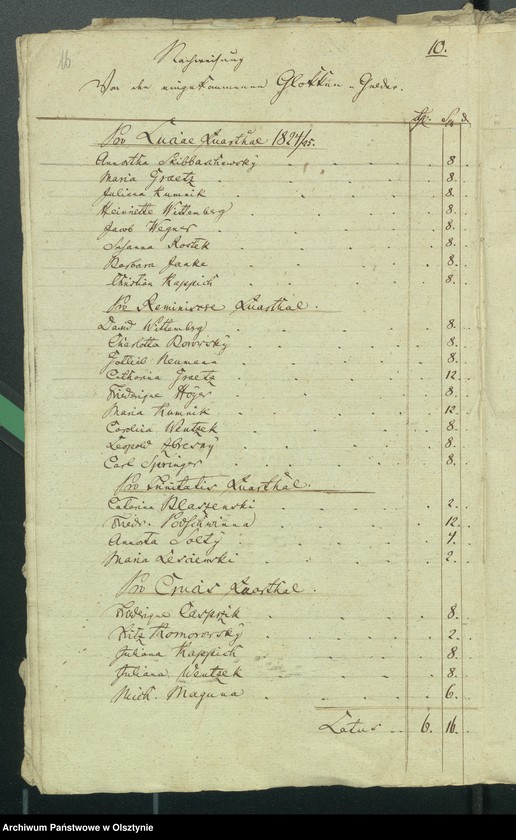 16
10.
Nachweisung
Von den eingekommenen Glokken-Gelder.
Pro Luciae Quarthal 1824/25.
Annortha Skibbaschewsky 8.
Maria Graetz 8.
Juliana Kumnik 8.
Heinriette Wittenberg 8.
Jacob Wegner 8.
Susanna Rostek 8.
Barbara Janke 8.
Christian Kappich 8.
Pro Reminiscere Quarthal.
David Wittemberg 8.
Charlotta Borowsky 8.
Gottlieb Neumann 8.
Catharina Graetz 12.
Friederique Höger 8.
Maria Kumnik 12.
Carolina Wentzek 8.
Leopold 8.
Carl Springer 8.
Pro Trinitatis Quarthal.
Catarina Blaszenski 2.
Friedr. 12.
Annorta Soltÿ 4.
Maria Lesciewski 2.
Pro Crucis Quarthal.
Friederique Casprzik 8.
Fritz Komorowsky 2.
Juliana Kappich 8.
Juliana Wentzek 8.
Mich. Maguna 6.
Latus 6. 16.
Archiwum Państwowe w Olsztynie